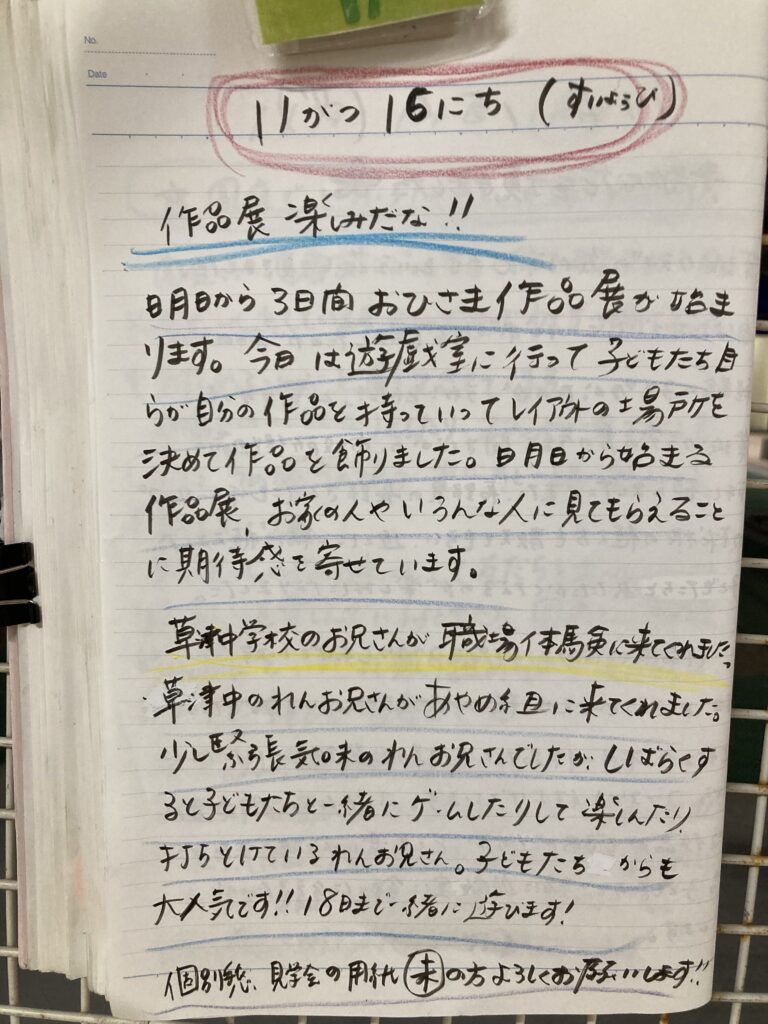 No.
Date
11がつ 16にち (すいようび)
作品展 楽しみだな!!
明日から3日間 おひさま作品展が始ま
ります。今日は遊戯室に行って子どもたち自
らが自分の作品を持っていってレイアウトの場所を
決めて作品を飾りました。明日から始まる
作品展、お家の人やいろんな人に見てもらえること
に期待感を寄せています。
草津中学校のお兄さんが職場体験に来てくれました。
草津中のれんお兄さんがあやめ組に来てくれました。
少し緊張気味のれんお兄さんでしたが、しばらくす
ると子どもたちと一緒にゲームしたりして楽しんだり、
打ちとけているれんお兄さん。子どもたちからも
大人気です!!18日まで一緒に遊びます!
個別懇、見学会の用紙 未の方よろしくお願いします!!